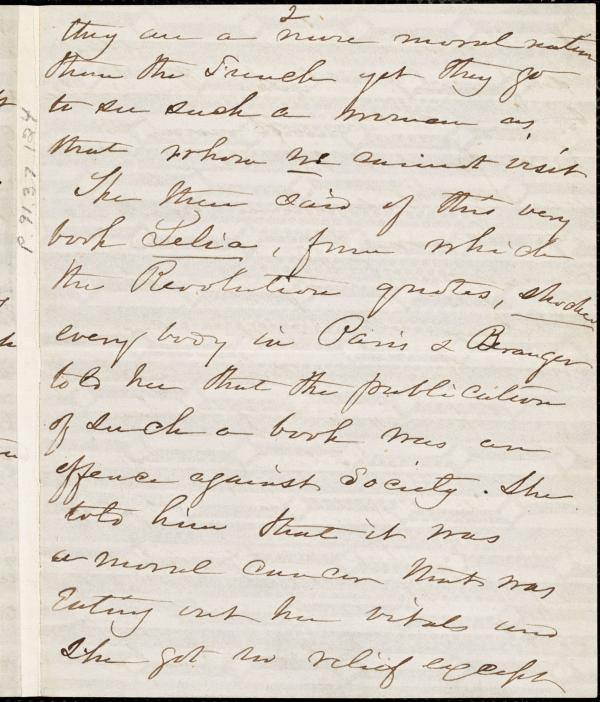 2
they are a more moral nation
than the French yet they go
to see such a woman as
that whom we cannot visit
She then said of this very
book Lelia, from which
the Revolution quotes, shocked
every body in Paris & Beranger
told her that the publication
of such a book was an
offence against Society. She
told him that it was
a moral cancer that was
eating out her vitals and
She got no relief except
P 91.37 134